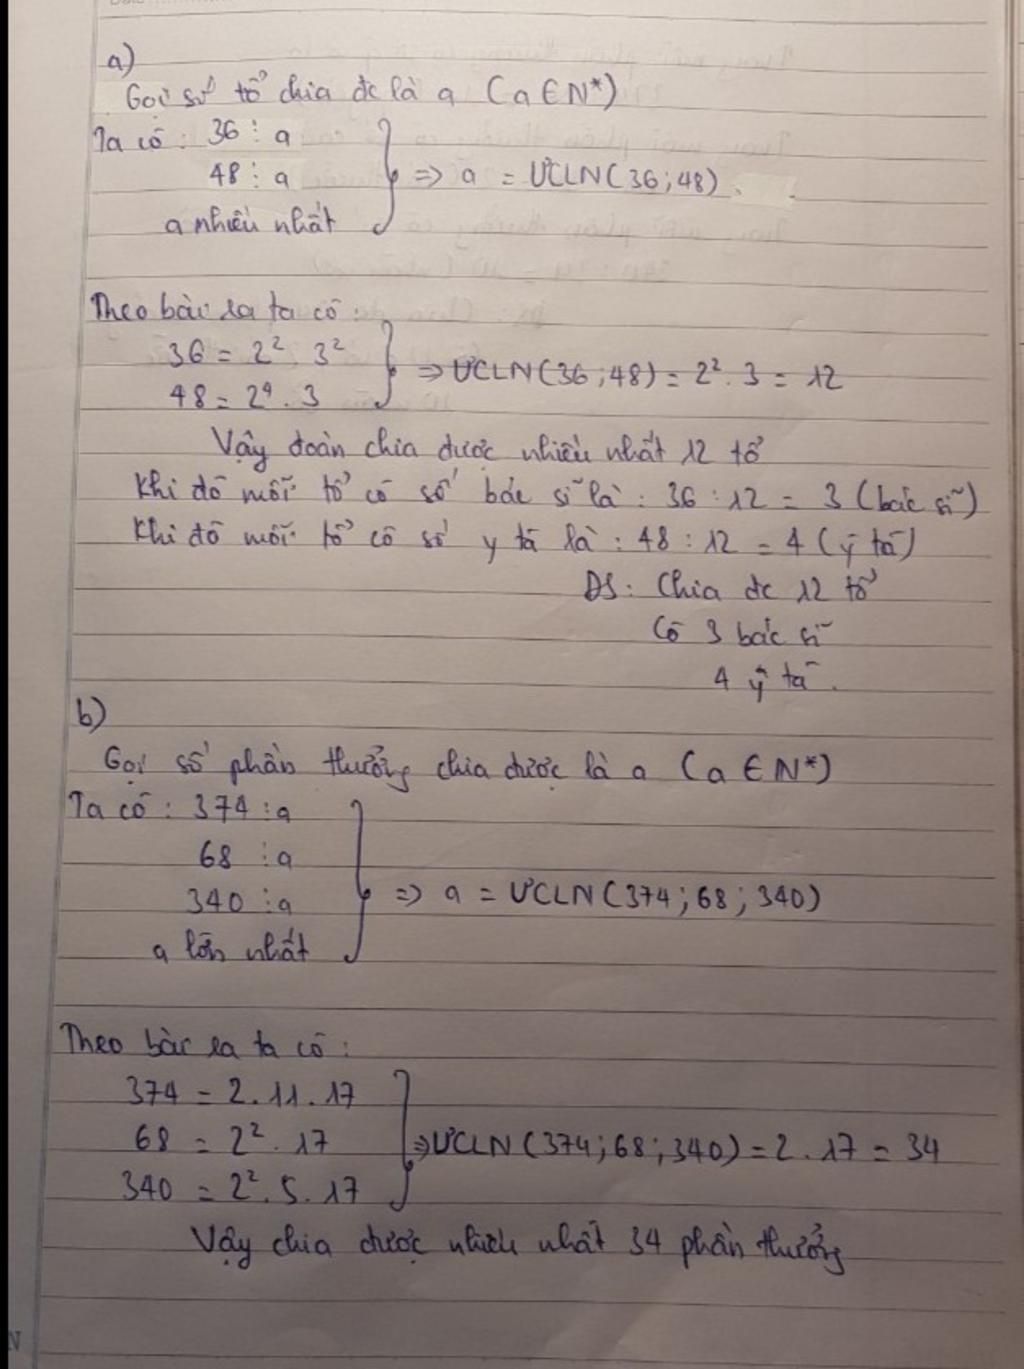 a)
Gọi số tổ chia đc là a (a ∈ N*)
Ta có: 36 ⋮ a
48 ⋮ a
a nhiều nhất
=> a = ƯCLN(36;48).
Theo bài ra ta có:
36 = 2². 3²
48 = 2⁴. 3
=> ƯCLN(36;48) = 2². 3 = 12
Vậy đoàn chia được nhiều nhất 12 tổ
Khi đó mỗi tổ có số bác sĩ là : 36 : 12 = 3 (bác sĩ)
Khi đó mỗi tổ có số y tá là : 48 : 12 = 4 (y tá)
ĐS: Chia đc 12 tổ
Có 3 bác sĩ
4 y tá.
b)
Gọi số phần thưởng chia được là a (a ∈ N*)
Ta có: 374 ⋮ a
68 ⋮ a
340 ⋮ a
a lớn nhất
=> a = ƯCLN(374;68;340)
Theo bài ra ta có:
374 = 2. 11. 17
68 = 2². 17
340 = 2². 5. 17
=> ƯCLN(374;68;340) = 2. 17 = 34
Vậy chia được nhiều nhất 34 phần thưởng